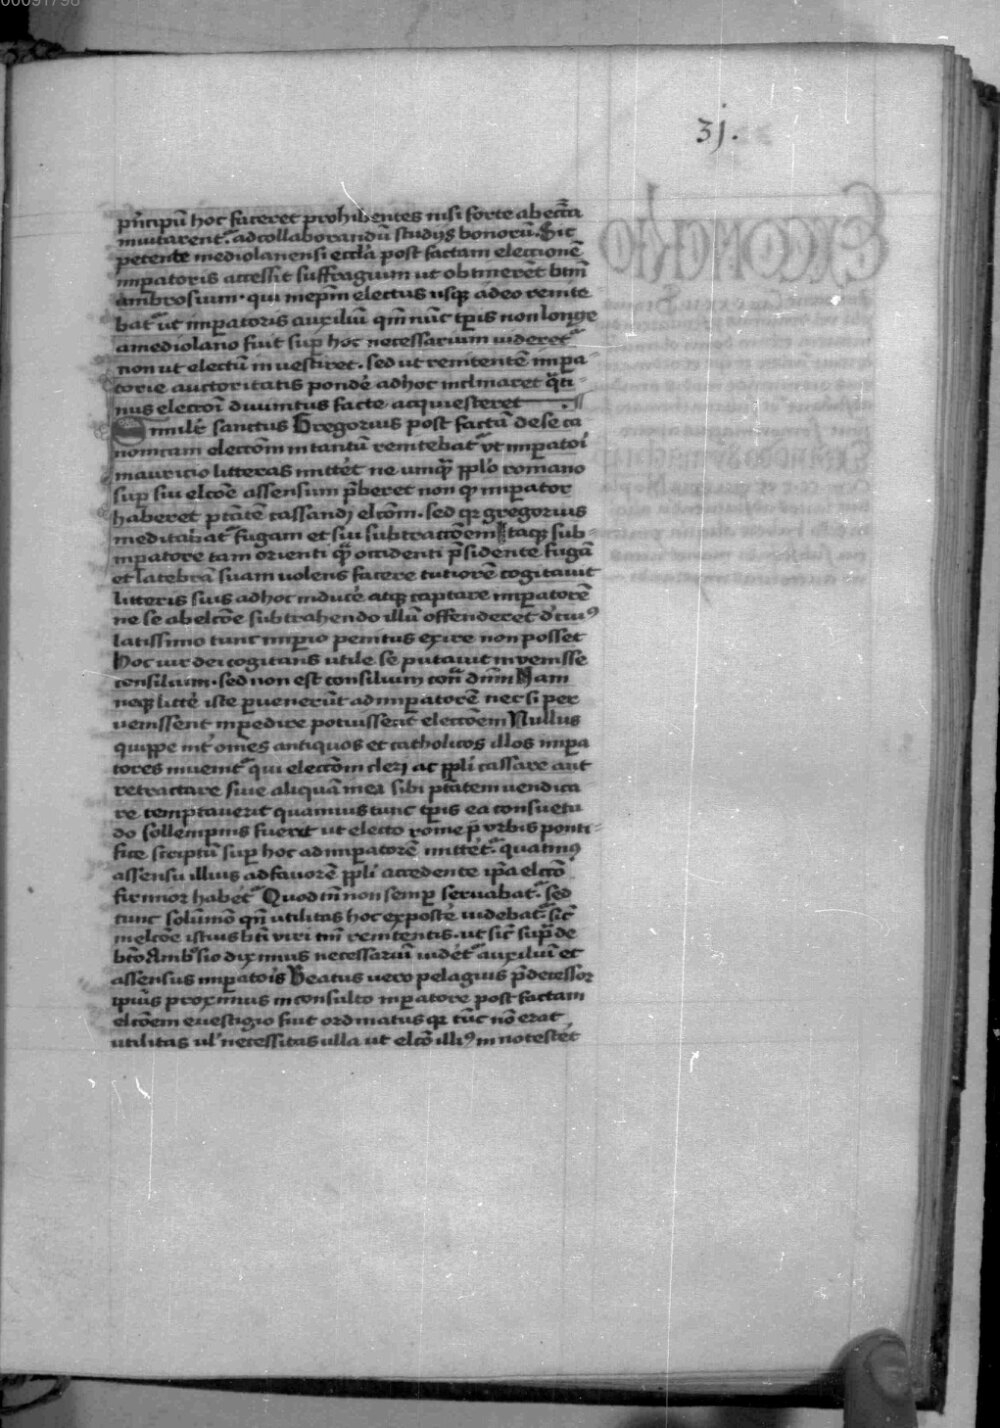 00091796
31.
pncipū hoc faceret prohibentes nisi forte ab ecc̄ia
inuitarent᷑ ad collaborandū studiis bonorū. Sic
petente mediolanensi eccl̄a post factam eleccionē
imꝑatoris accessit suffragium ut obtineret btm̄
ambrosium. qui inepm̄ electus usqꝫ adeo renite
bat᷑ ut imꝑatoris auxiliū qm̄ nūc tꝑis non longe
a mediolano fuit suꝑ hoc necessarium uideret᷑
non ut electū inuestiret. sed ut renitentē imꝑa-
torie auctoritatis pondē ad hoc inclinaret qͣti-
nus eleccoī diuinitus facte acquiesceret
Similr̄ sanctus Gregorius post factā de se ca
nonicam eleccōm in tantū renitebat᷑ ut imꝑatoī
mauricio litteras mittēt ne umqͣ ppl̄o romano
suꝑ sui elcōe assensum p̄beret non qꝫ imꝑator
haberet ptātē cassandj elcōm. sed qꝛ gregorius
meditabat᷑ fugam et sui subtraccōem Itaqꝫ sub-
imꝑatore tam orienti qͣ occidenti p̄sidente fugā
et latebrā suam uolens facere tutiorē cogitauit
litteris suis ad hoc inducē atqꝫ captare imꝑatorē
ne se ab elcōe subtrahendo illū offenderet
latissimo tunc imꝑio penitus exire non posset
Hoc uir dei cogitans utile se putauit inuenisse
consilium. sed non est consilium conͣ dnm̄ Nam
neqꝫ littē iste ꝑuenerūt ad imꝑatorē nec si per
uenissent inpedire potuisserit eleccōem Nullus
quippe int᷑ oīnes antiquos et catholicos illos imꝑa
tores inuenit᷑ qui eleccōm clerj ac ppl̄i cassare aut
retractare siue aliquā in ea sibi ptātem uendica
re temptauerit quamuis tunc tꝑis ea consuetu
do sollempnis fueret ut electo rome p̄ urbis ponti-
fice scriptū suꝑ hoc ad imꝑatorē mittēt᷑ quatinꝰ
assensu illius ad fauorē ppl̄i accedente ip̄a elccō
firmior habēt᷑ Quod tn̄ non semꝑ seruabat᷑ sed
tunc solūmō qn̄ utilitas hoc exposcē uidebat᷑ sic̄
in elcōe istius bti viri tn̄ renitentis. ut sic̄ supͣ de
btō Ambͦsio diximus necessariū uidēt᷑ auxiliū et
assensus imꝑatoīs Beatus uero pelagius p̄decessor
ipīus proximus inconsulto inꝑatore post factam
elcōem euestigio fuit ordinatus qꝛ tūc nō erat
utilitas ul᷑ necessitas ulla ut elcō illiꝰ innotescēt